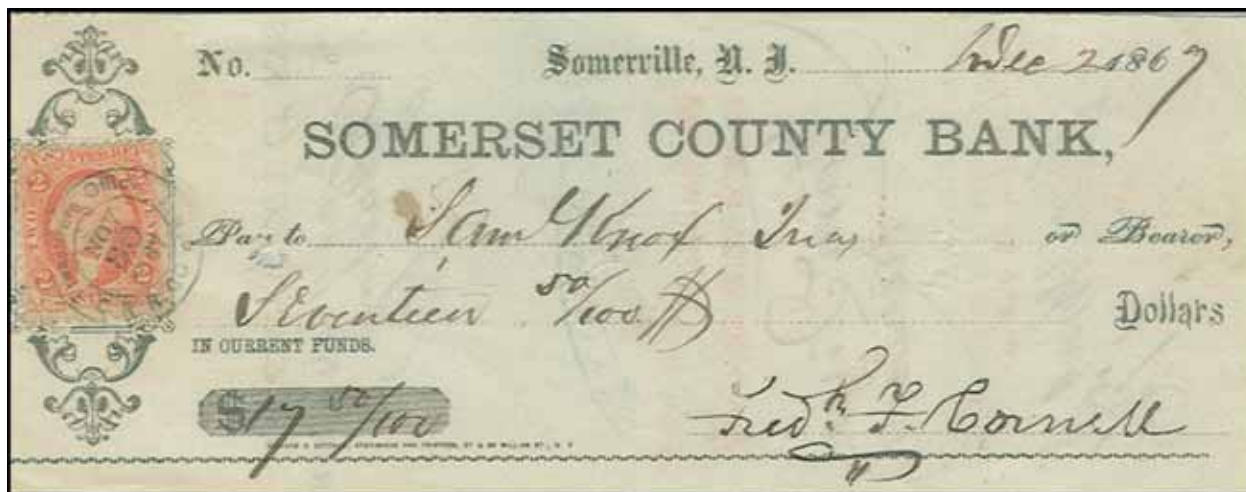 No. Somerville, N. J. Dec 2 1867
SOMERSET COUNTY BANK,
Pay to Saml Knox Treas or Bearer,
Seventeen 50/100 Dollars
IN CURRENT FUNDS.
$17 50/100
Fredk F. Cornell
TWO
NOV